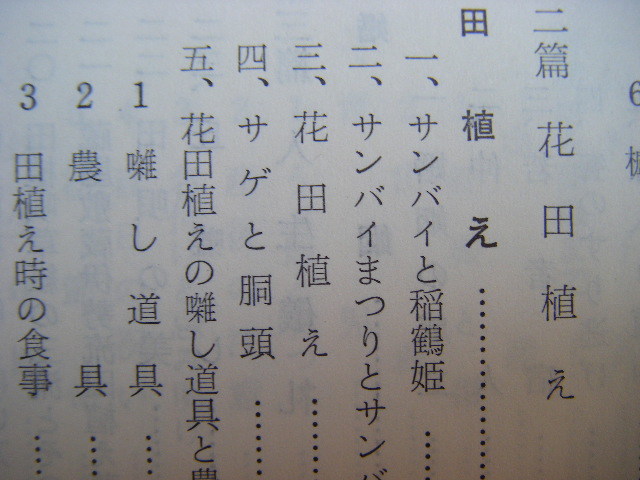 二篇 花田植え
田植え……………
一、サンバイと稲鶴姫……
二、サンバイまつりとサンバ
三、花田植え……
四、サゲと胴頭……
五、花田植えの囃し道具と農
1 囃し道具……
2 農具……
3 田植え時の食事……